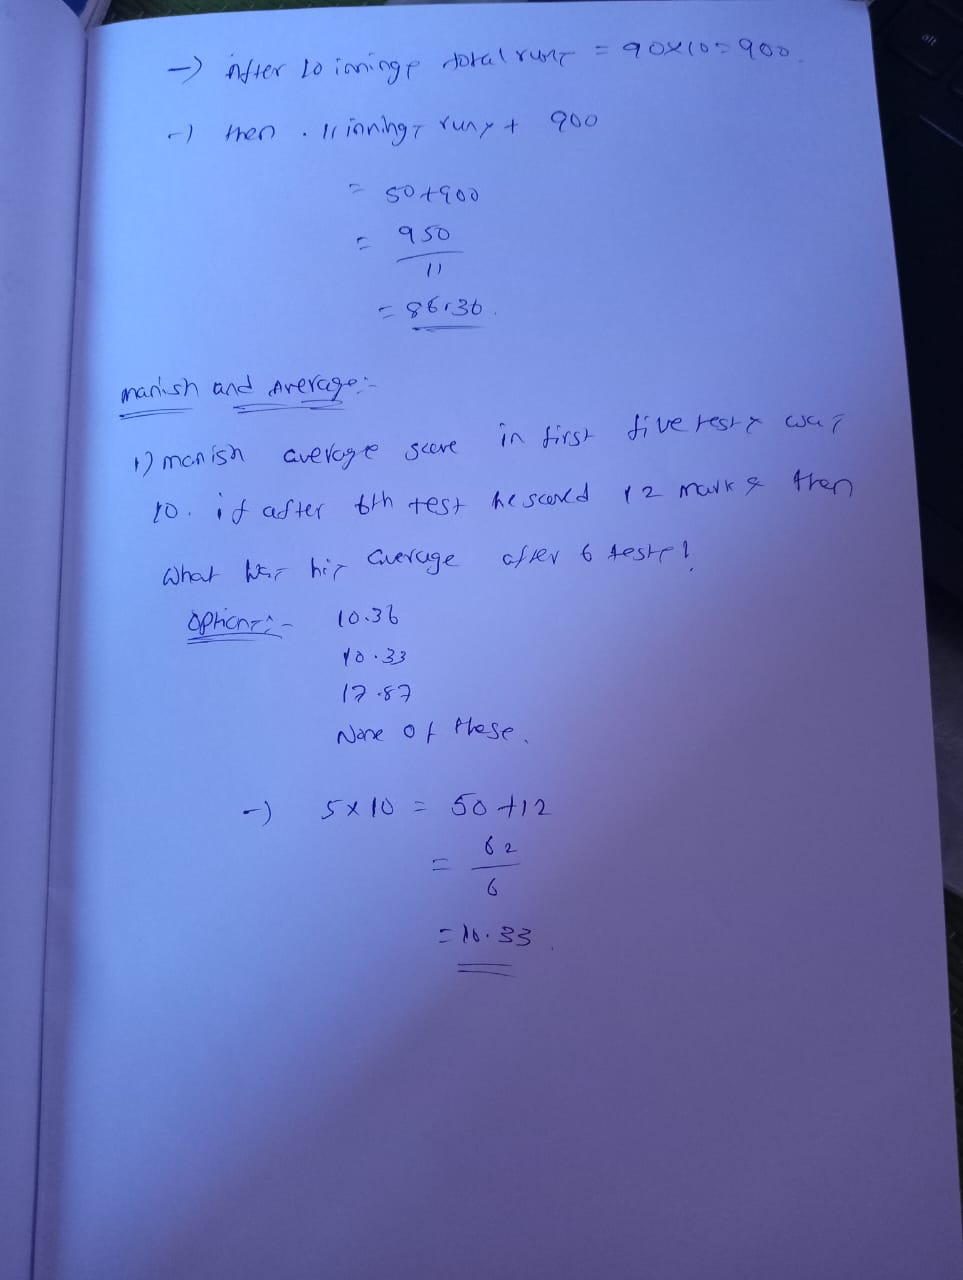 → After 10 innings total runs = 90x10=900
→ then . 11 innings runs + 900
= 50+900
= 950
11
= 86.36.
manish and Average:-
1) manish average score in first five tests was
10. if after 6th test he scored 12 marks then
what was his average after 6 tests?
options:- 10.36
10.33
17.87
None of these.
→ 5x10 = 50+12
= 62
6
= 10.33.
alt